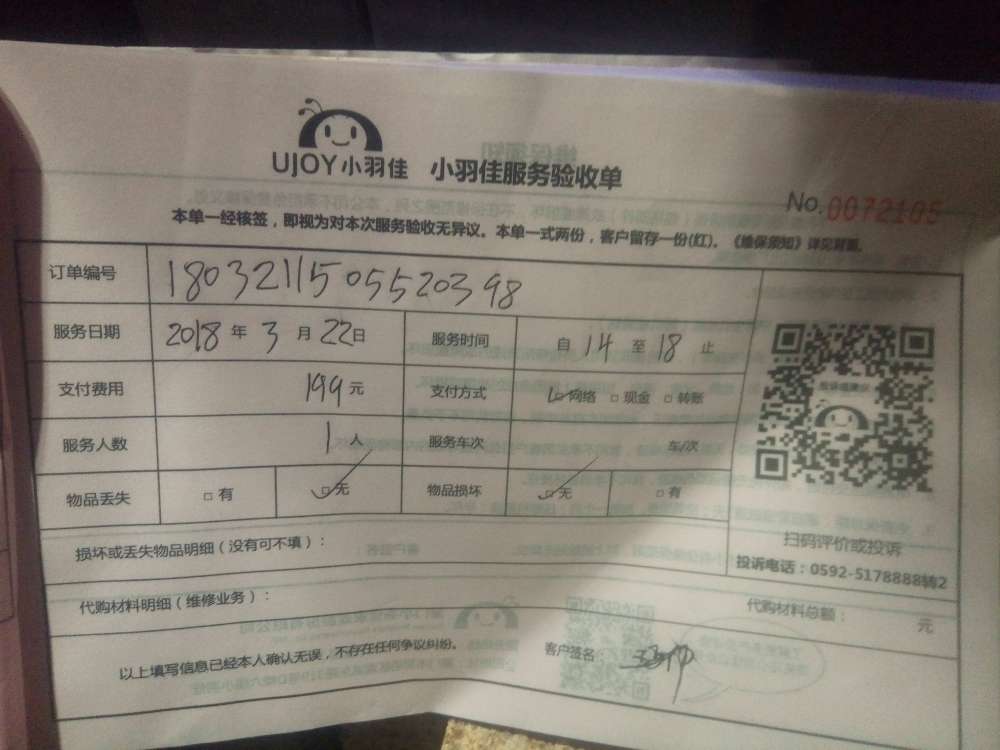 UJOY小羽佳 小羽佳服务验收单
No.0072105
本单一经核签，即视为对本次服务验收无异议。本单一式两份，客户留存一份(红)。《维保须知》详见背面。
订单编号 1803211505520398
服务日期 2018年3月22日 服务时间 自14至18止
支付费用 199元 支付方式 □网络 □现金 □转账
服务人数 1人 服务车次 车/次
物品丢失 □有 □无 物品损坏 □无 □有
扫码评价或投诉
投诉电话：0592-5178888转2
损坏或丢失物品明细（没有可不填）：
代购材料明细（维修业务）： 代购材料总额： 元
以上填写信息已经本人确认无误，不存在任何争议纠纷。 客户签名：